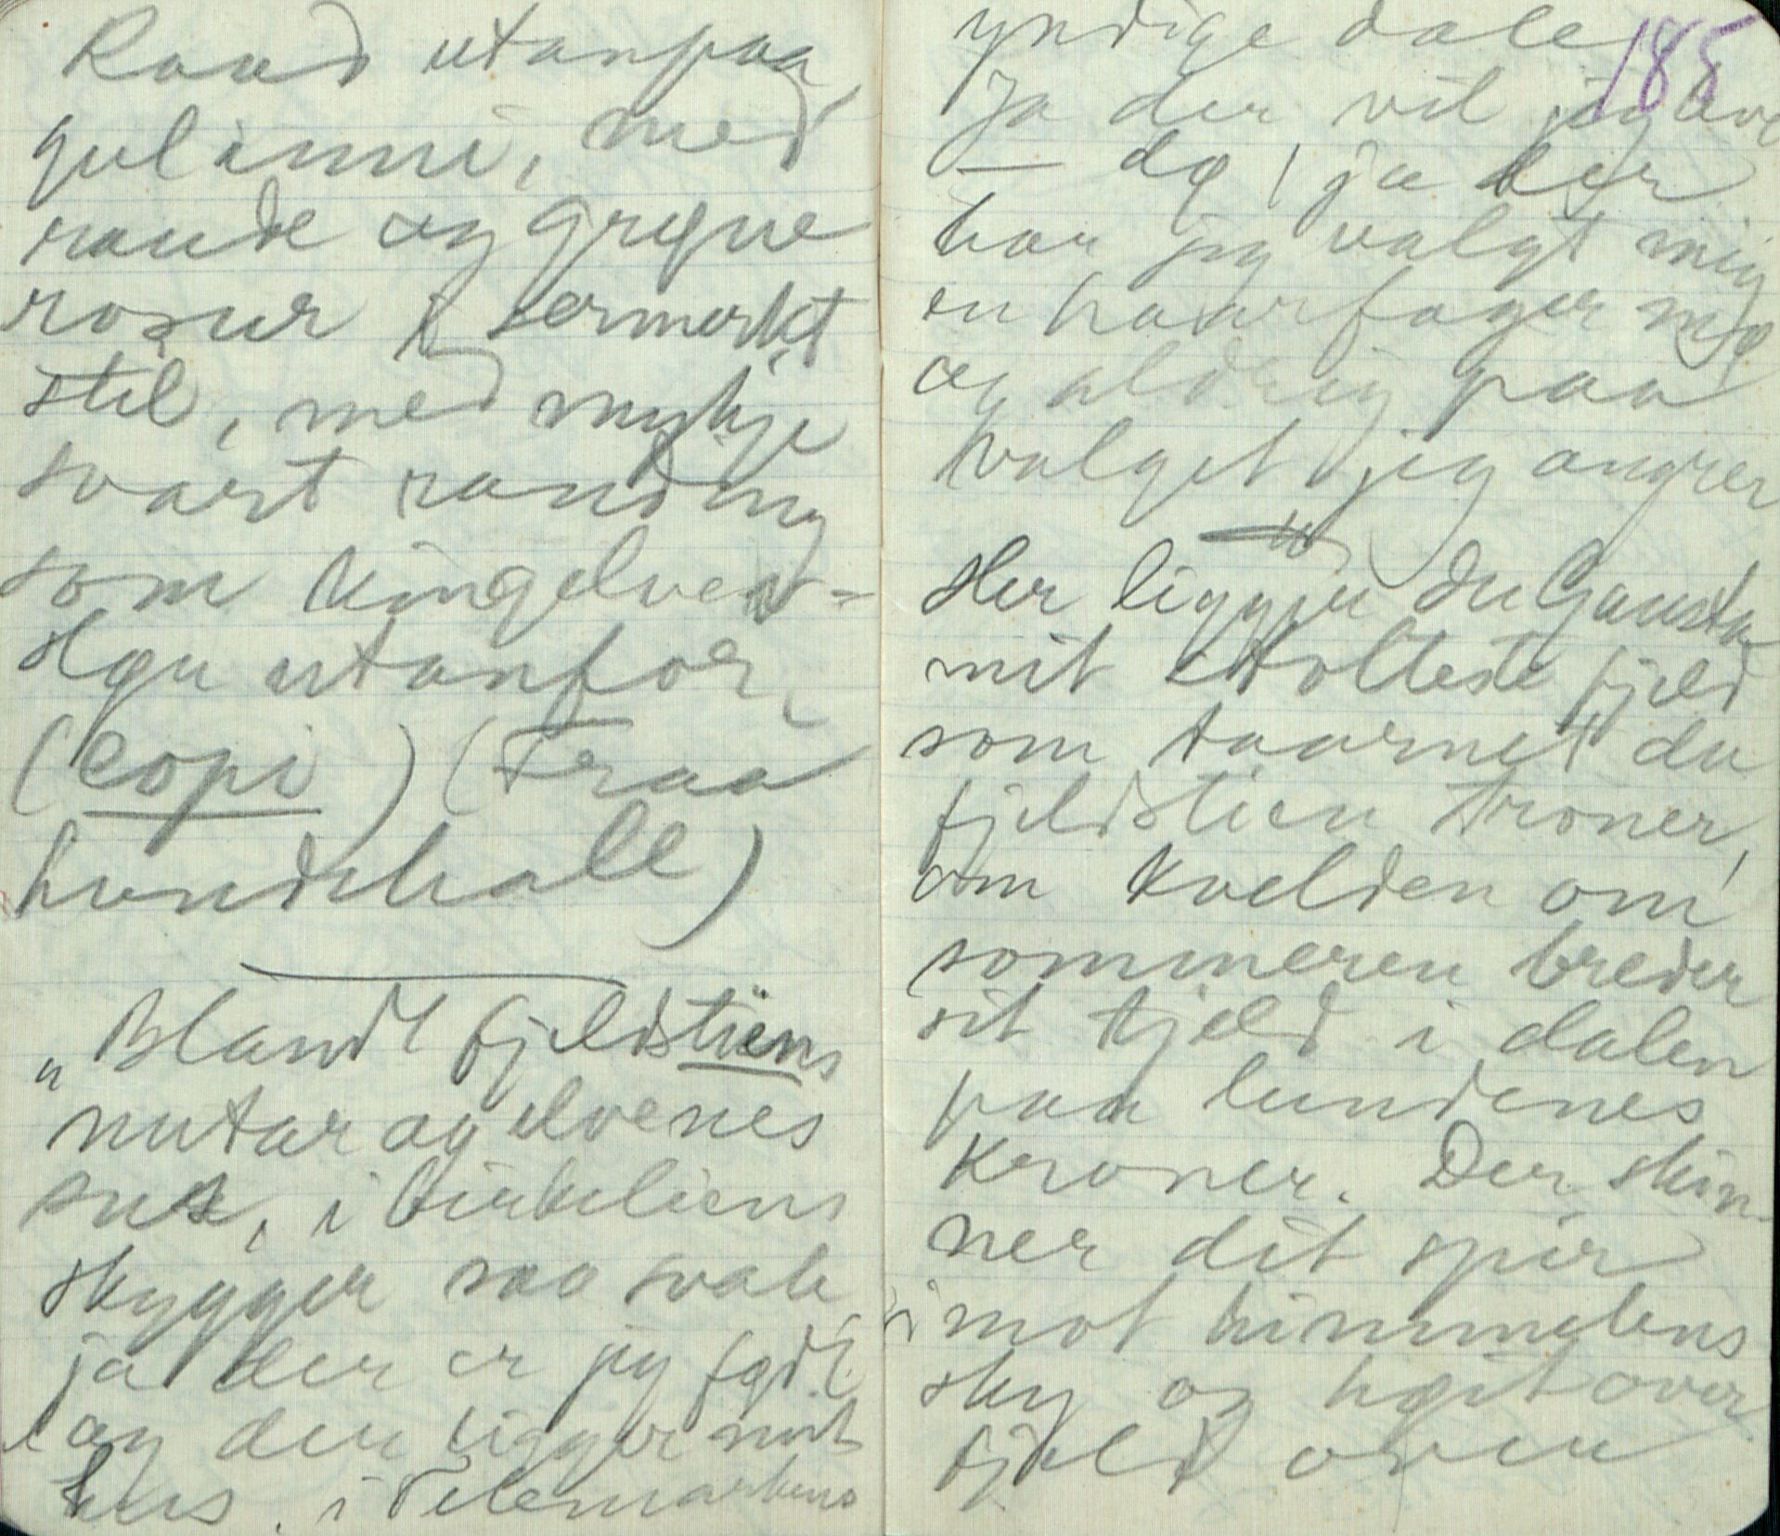 Raud utanpaa
gul inni, med
raude og grøne
rosur i sermerkt
stil, med mykje
svart randing
som kingelvev-
slgu utanfor,
(copi) (Fraa
Lundehall)
„Blandt fjeldstiens
nutar og elvenes
sus, i birkeliens
skygger saa svale
ja der er jeg født
og der ligger mit
hus. i Telemarkens
yndige dale
185
Ja der vil jeg leve
— dø, ja der
har jeg valgt mig
en haarfager mø
og aldrig paa
valget jeg angrer
Her ligger du Gausta
mit stolteste fjeld
som taarnet du
fjeldstien troner,
om kvelden om
sommeren breder
sit tjeld i dalen
paa lundenes
kroner. Der skin-
ner dit spir
imot himmelens
sky og høit over
fjeld oven